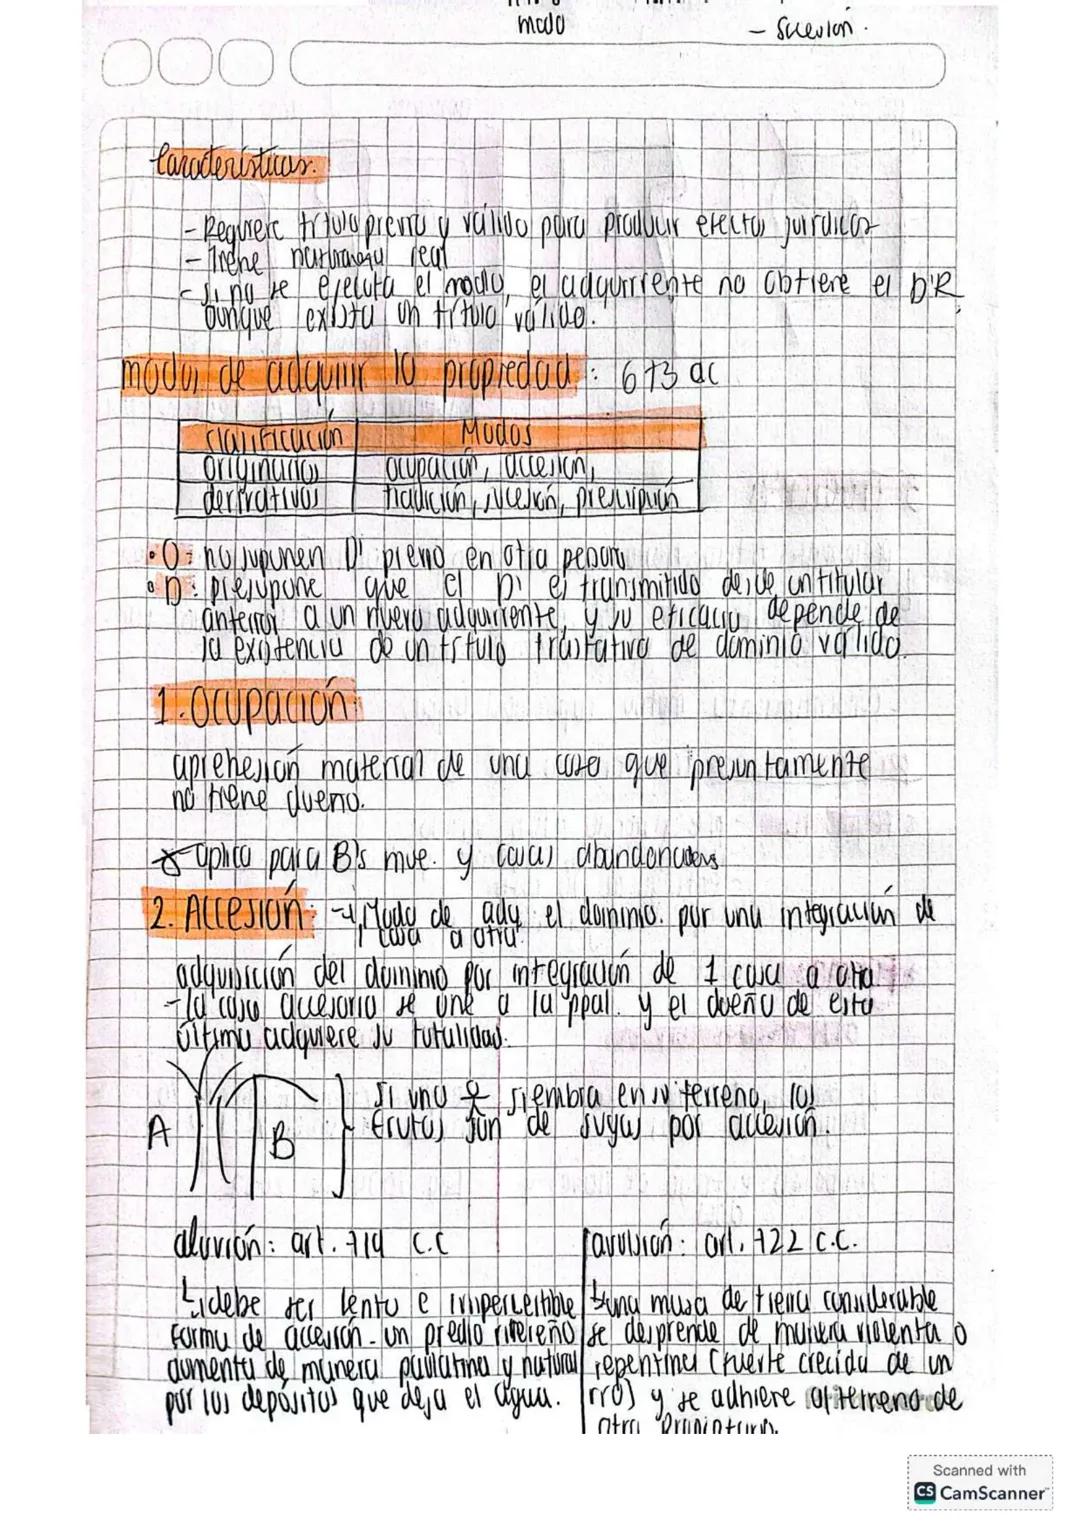 modo
- Sucesión.
Características.
- Requiere título previo y válido para producir efectos jurídicos
- Tiene naturaleza real
- Si no se ejecuta el modo, el adquirente no obtiene el D'R
aunque exista un título válido.
modos de adquirir la propiedad: 673 cc
clasificación Modos
originarios ocupación, accesión,
derivativos tradición, sucesión, prescripción
• O: no suponen D' previo en otra persona
• D: presupone que el D' es transmitido desde un titular
anterior a un nuevo adquirente, y su eficacia depende de
la existencia de un título traslativo de dominio válido.
1. Ocupación:
aprehesión material de una cosa que presuntamente
no tiene dueño.
aplica para B's mue. y cosas abandonadas
2. Accesión: → Modo de adq. el dominio. por una integración de
cosa a otra
adquisición del dominio por integración de 1 cosa a otra
- la cosa accesoria se une a la ppal. y el dueño de esta
última adquiere su totalidad.
Si una siembra en su terreno, los
A B frutos son de suyos por accesión.
aluvión: art. 719 c.c
avulsión: art. 722 c.c.
debe ser lento e imperceptible
forma de accesión - un predio ribereño
aumenta de manera paulatina y natural
por los depósitos que deja el agua.
una masa de tierra considerable
se desprende de manera violenta o
repentina (fuerte crecida de un
río) y se adhiere al terreno de
otro propietario.
Scanned with
CS CamScanner